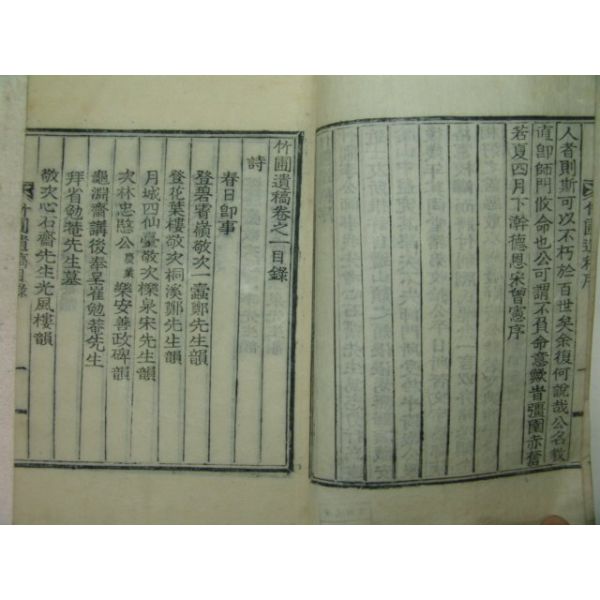 竹圃遺稿序
人者則斯可以不朽於百世矣余復何說哉公名敎
直卽師門攸命也公可謂不負命意歟旹彊圉赤奮
若夏四月下澣德恩宋曾憲序
竹圃遺稿卷之一目錄
詩
春日卽事
登碧霄嶺敬次一蠹鄭先生韻
登花葉樓敬次桐溪鄭先生韻
月城四仙臺敬次櫟泉宋先生韻
次林忠愍公慶業樂安善政碑韻
龜淵齋講後奉呈崔勉菴先生
拜省勉菴先生墓
敬次心石齋先生光風樓韻
竹圃遺稿目錄
一